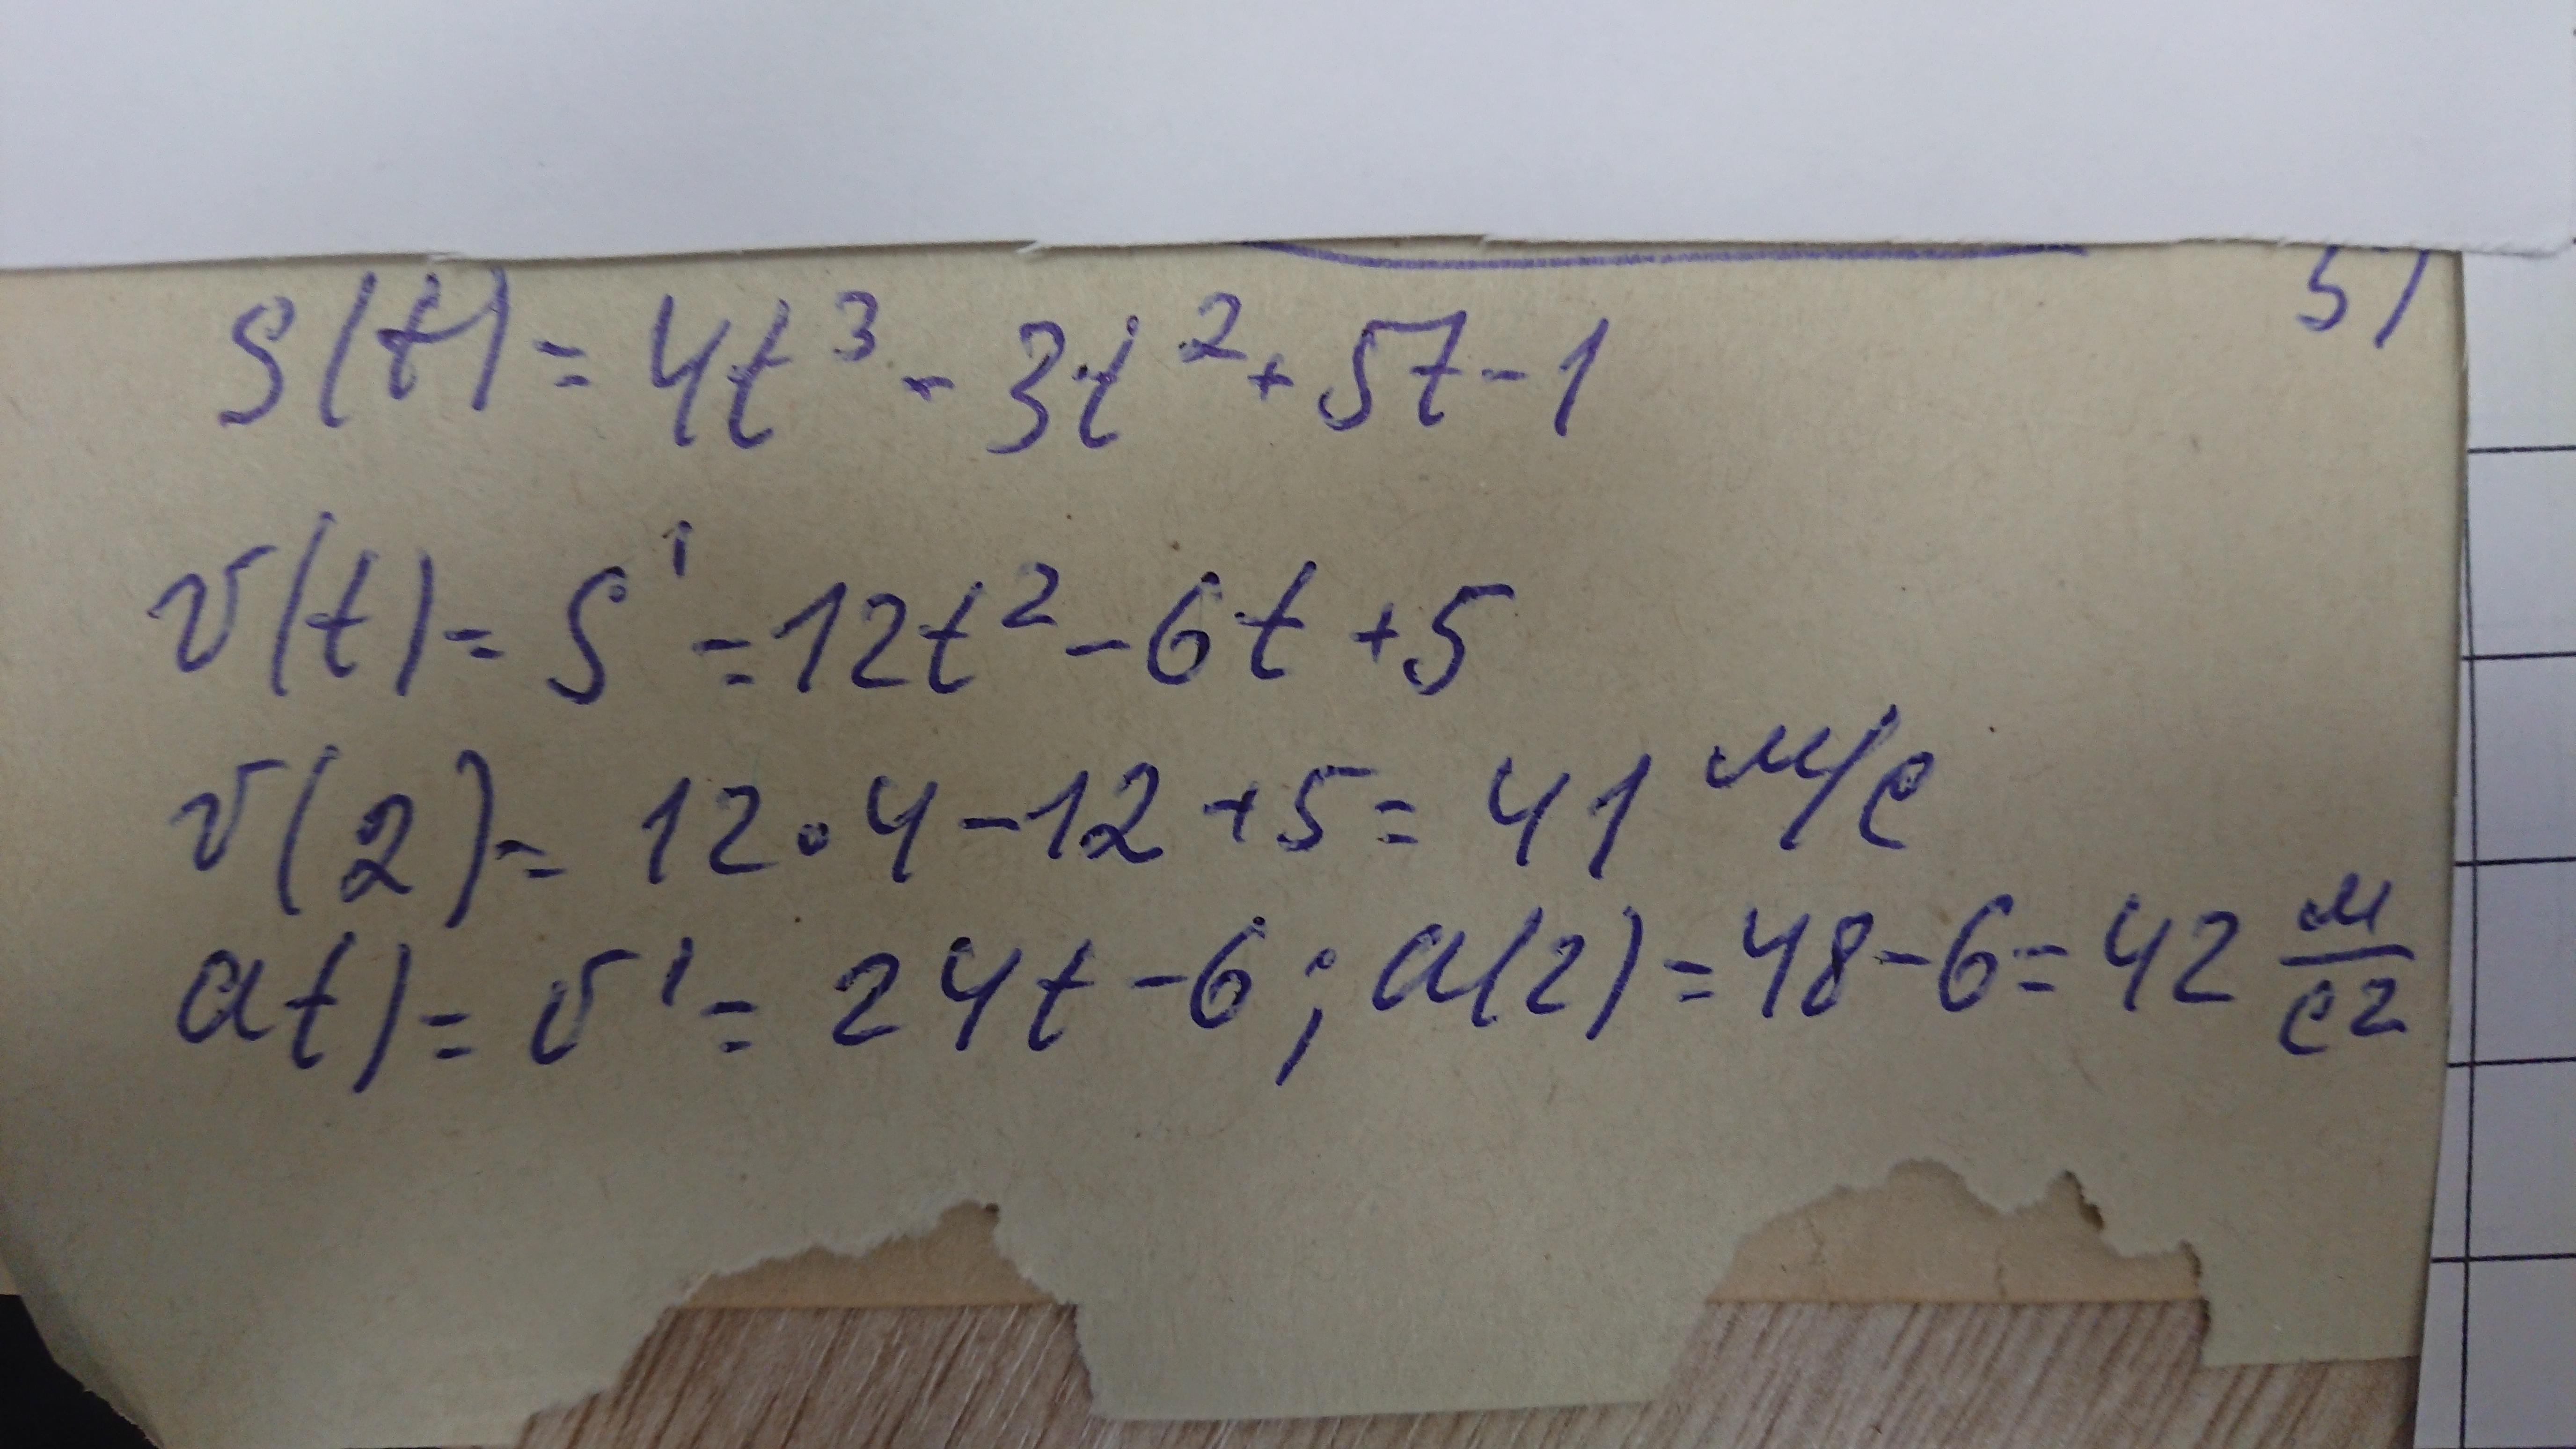 5)
S(t) = 4t³ - 3t² + 5t - 1
v(t) = S' = 12t² - 6t + 5
v(2) = 12·4 - 12 + 5 = 41 м/с
at) = v' = 24t - 6; a(2) = 48 - 6 = 42 м/с²